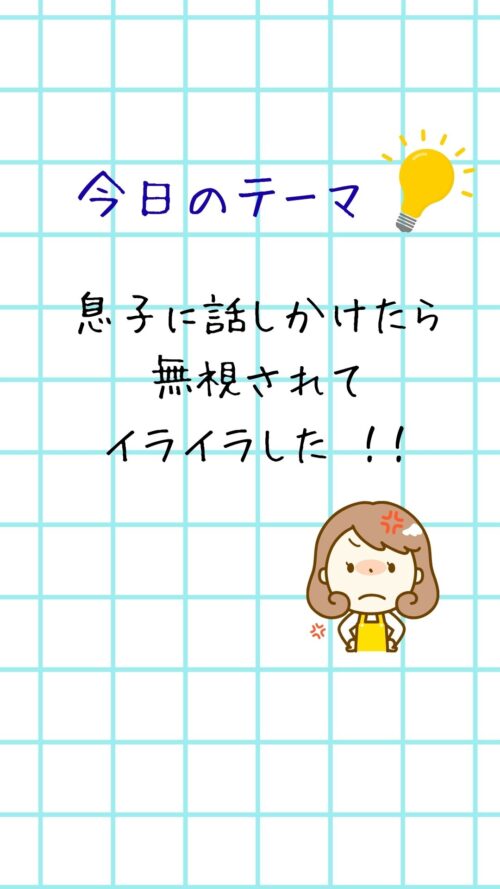 今日のテーマ
息子に話しかけたら
無視されて
イライラした !!